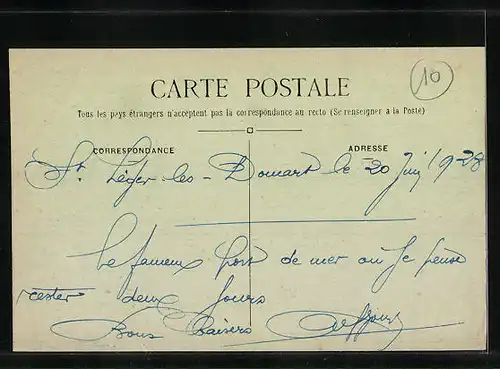 10
CARTE POSTALE
Tous les pays étrangers n'acceptent pas la correspondance au recto (Se renseigner à la Poste)
CORRESPONDANCE
ADRESSE
St. Léger-les-Domart le 20 Juin 1928
Le fameux port de mer ou Je pense
rester deux Jours
Bons Baisers